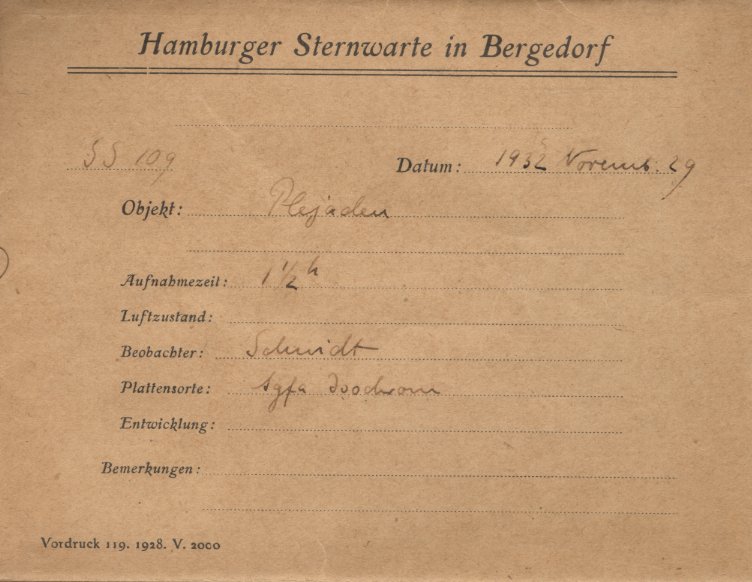 Hamburger Sternwarte in Bergedorf
SS 109 Datum: 1932 Novemb. 29
Objekt: Plejaden
Aufnahmezeit: 1 1/2 h
Luftzustand:
Beobachter: Schmidt
Plattensorte: Agfa Isochrom
Entwicklung:
Bemerkungen:
Vordruck 119. 1928. V. 2000